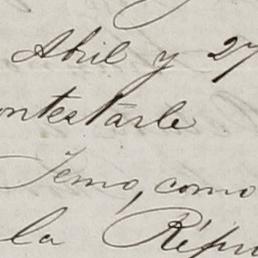 Abril y 27
ontestarle
Temo, como
la Repú